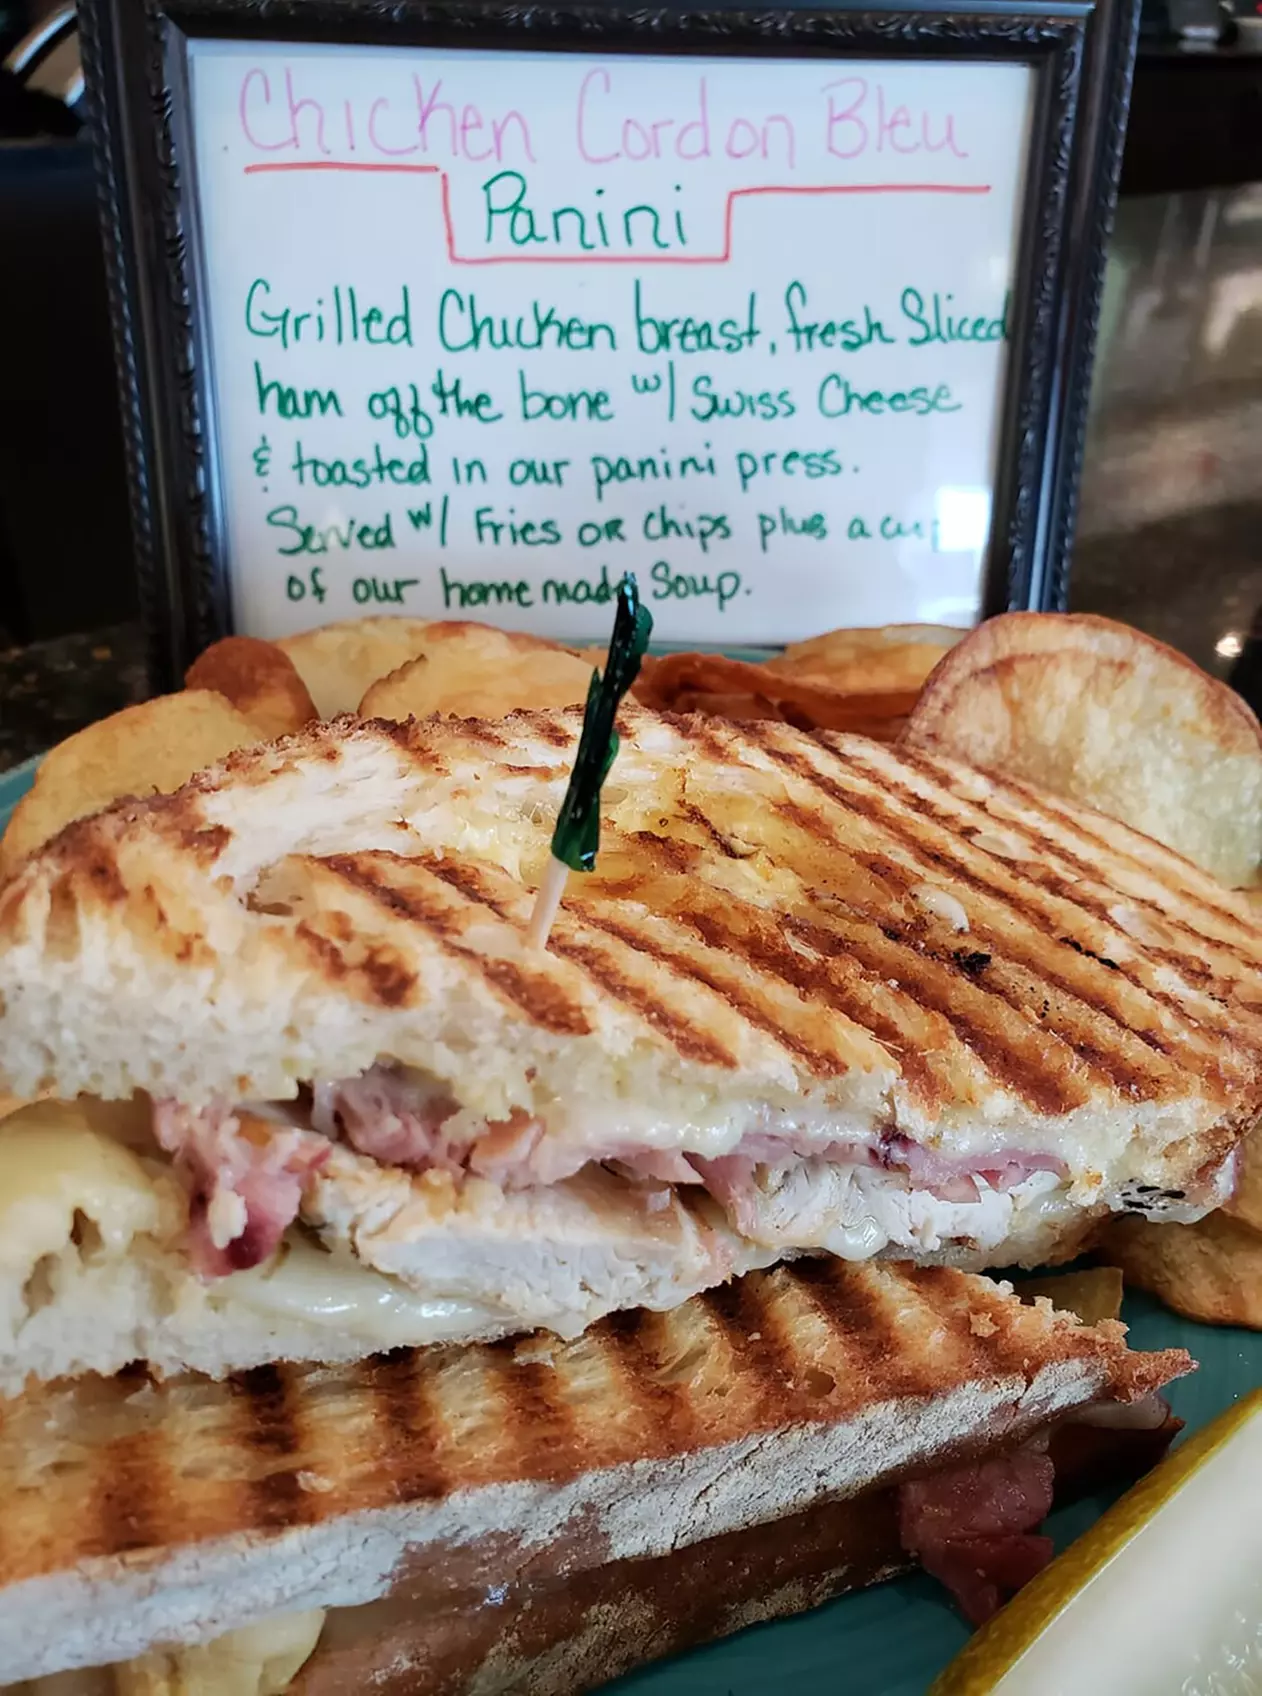 Chicken Cordon Bleu
Panini
Grilled Chicken breast, fresh Sliced
ham off the bone w/ Swiss Cheese
& toasted in our panini press.
Served w/ Fries or Chips plus a cup
of our homemade Soup.